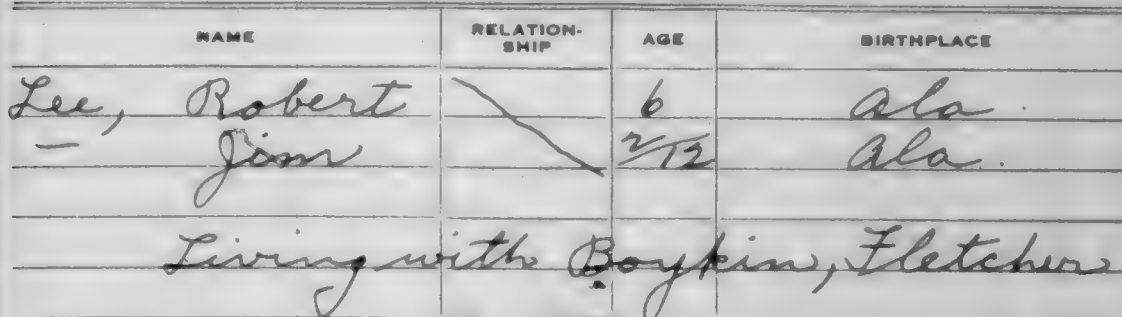 NAME RELATION-SHIP AGE BIRTHPLACE
Lee, Robert 6 Ala.
— Jim 2/12 Ala.
Living with Boykin, Fletcher